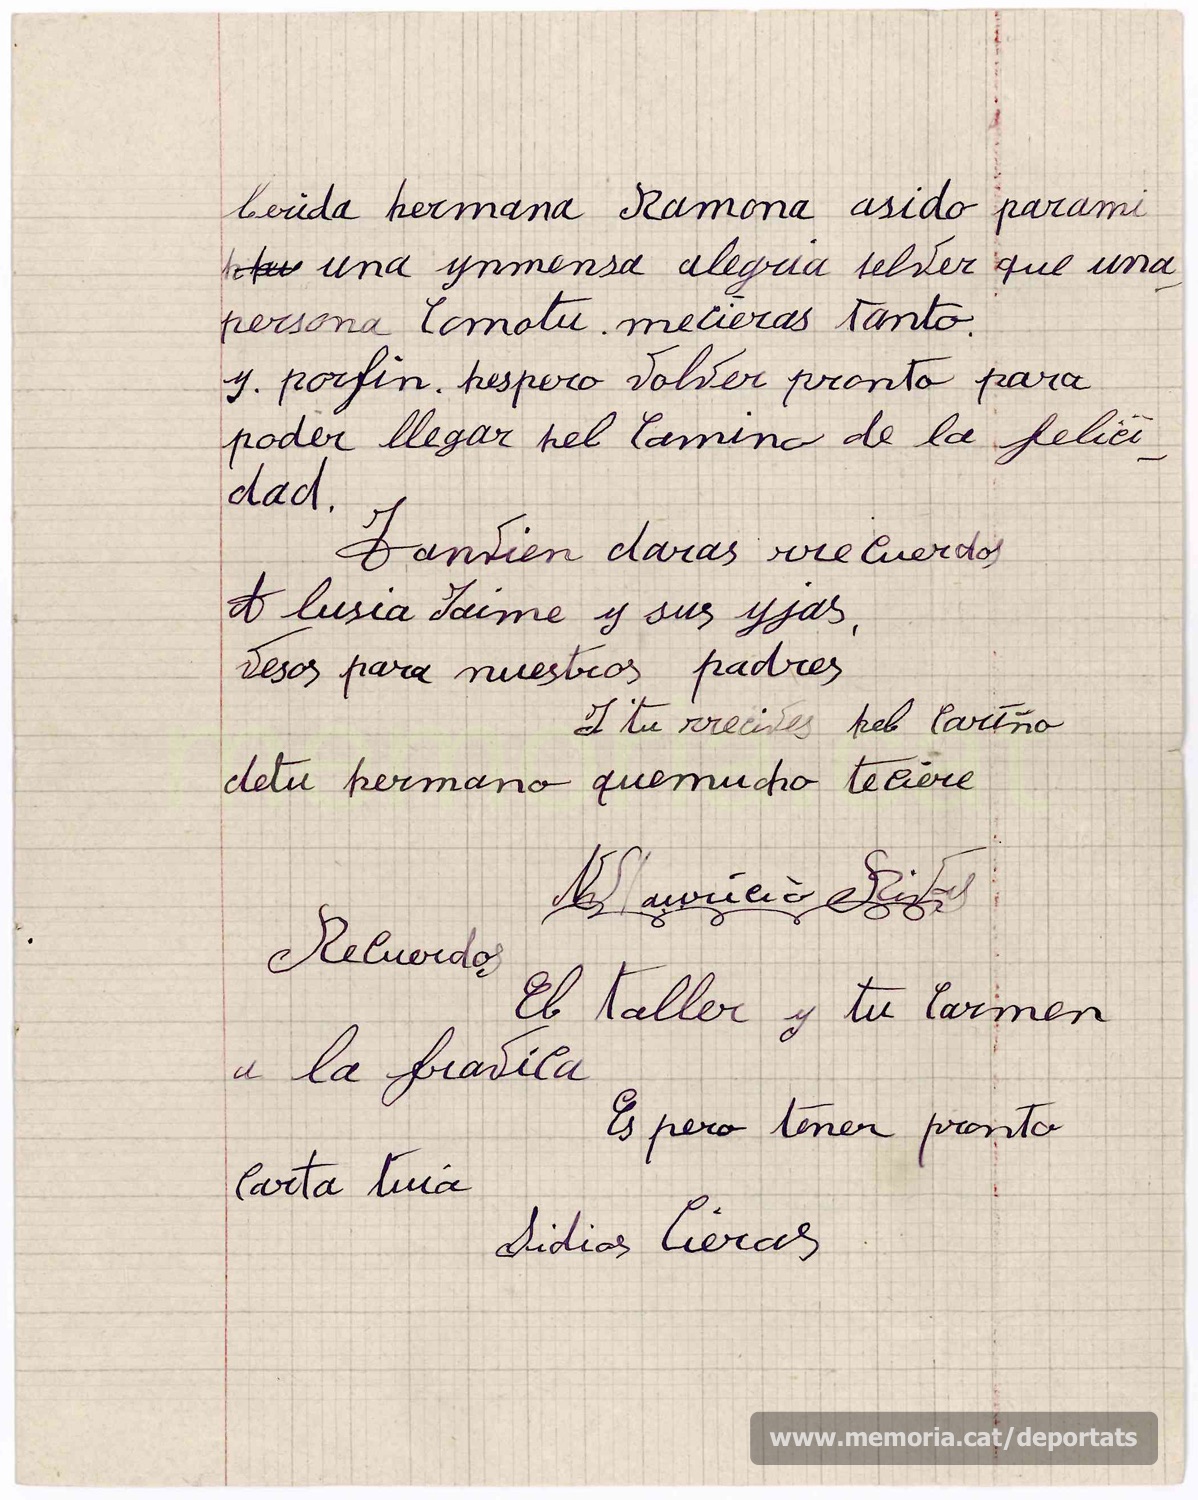 Cerida hermana Ramona asido parami
una ynmensa alegria helver que una
persona Comotu . mecieras tanto.
y. porfin. hespero volver pronto para
poder llegar hel Camino de la felici_
dad.
Tanvien daras rrecuerdos
A lusia Jaime y sus yjas,
vesos para nuestros padres
I tu rrecives hel Cariño
detu hermano quemucho teciere
Mauricio Rivas
Recuerdos
El taller y tu Carmen
a la fravica
Espero tener pronto
Carta tuia
Sidios Cieras
www.memoria.cat/deportats